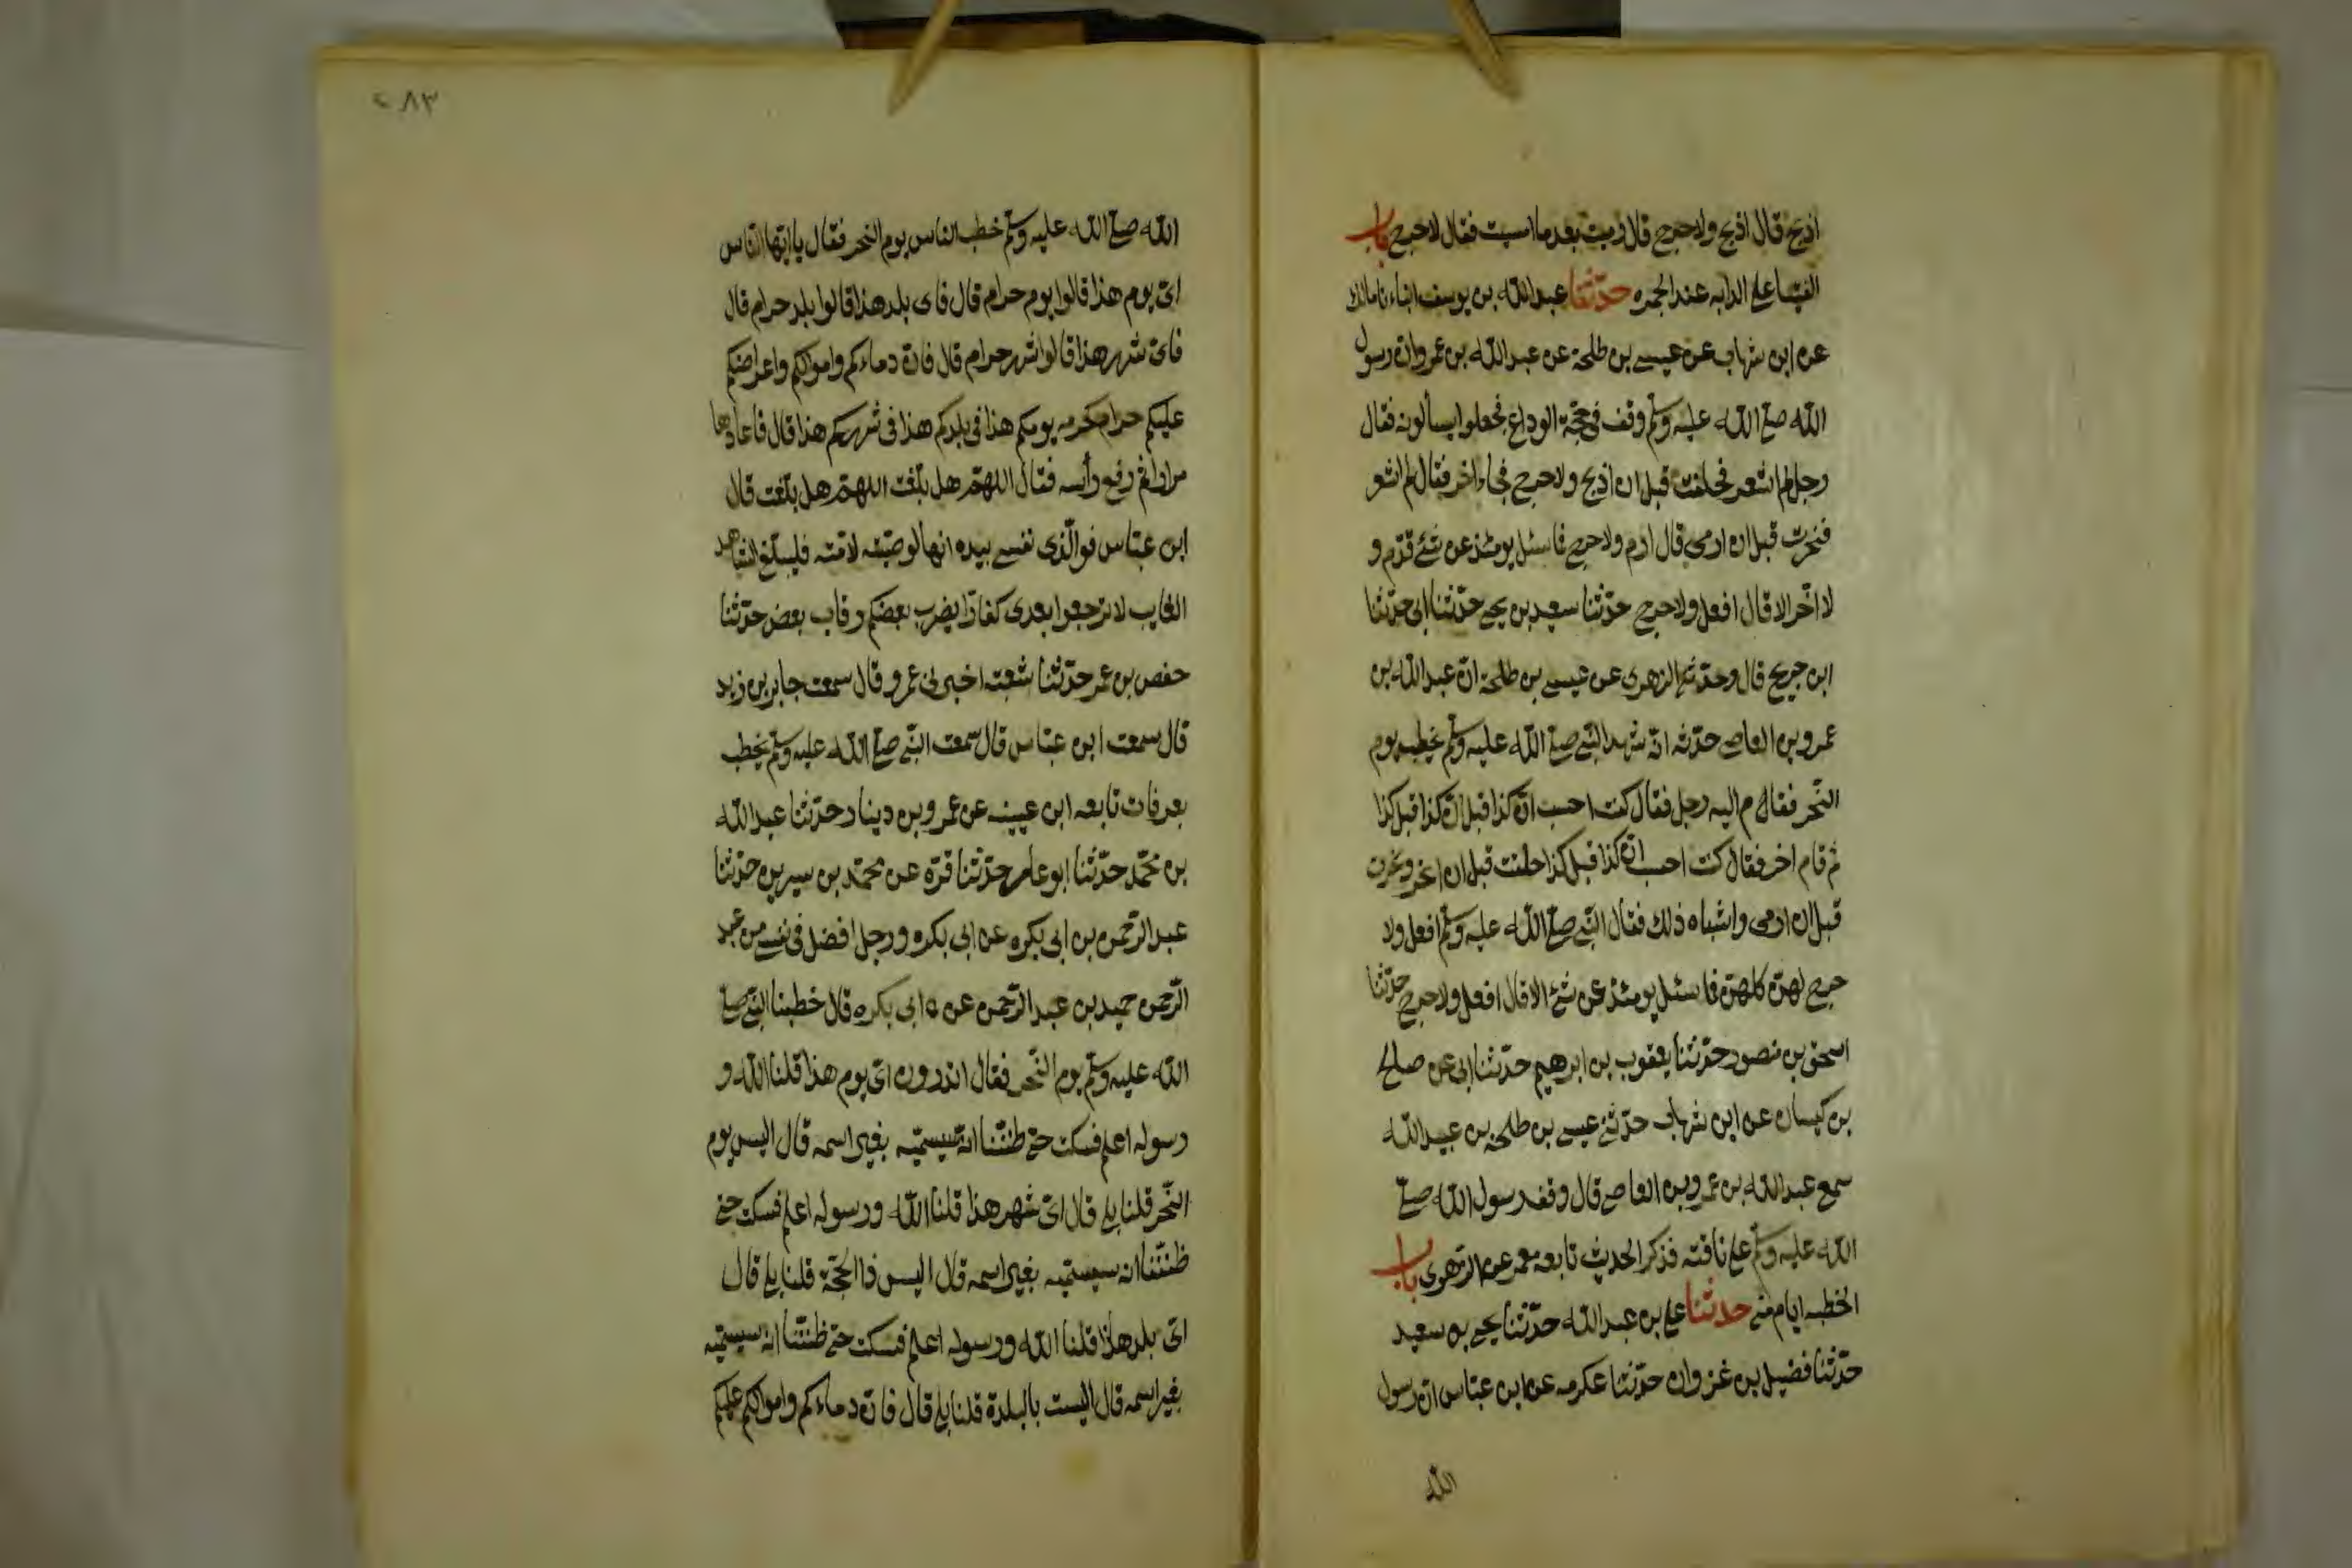 اذبح قال اذبح ولا حرج قال رميت بعد ما امسيت فقال لا حرج باب
الفتيا على الدابه عند الجمره حدثنا عبد الله بن يوسف انباءنا مالك
عن ابن شهاب عن عيسى بن طلحة عن عبد الله بن عمرو انّ رسول
الله صلى الله عليه وسلم وقف في حجّة الوداع فجعلوا يسألونه فقال
رجل لم اشعر فحلقت قبل ان اذبح ولا حرج فجاء اخر فقال لم اشعر
فنحرت قبل ان ارمى قال ارم ولا حرج فما سئل يومئذ عن شئ قدّم و
لا اخّر الا قال افعل ولا حرج حدّثنا سعيد بن يحيى حدّثنا ابى حدّثنا
ابن جريج قال وحدّثنى الزهرى عن عيسى بن طلحة انّ عبد الله بن
عمرو بن العاص حدّثه انّه شهد النّبى صلى الله عليه وسلم يخطب يوم
النّحر فقام اليه رجل فقال كنت احسب انّ كذا قبل كذا قبل كذا
ثم قام اخر فقال كنت احسب انّ كذا قبل كذا حلقت قبل ان انحر ونحرت
قبل ان ارمى واشباه ذلك فقال النّبى صلى الله عليه وسلم افعل ولا
حرج لهنّ كلهنّ فما سئل يومئذ عن شئ الا قال افعل ولا حرج حدّثنا
اسحق بن منصور حدّثنا يعقوب بن ابرهيم حدّثنا ابى عن صالح
بن كيسان عن ابن شهاب حدّثنى عيسى بن طلحة بن عبيد الله
سمع عبد الله بن عمرو بن العاص قال وقف رسول الله صلى
الله عليه وسلم على ناقته فذكر الحديث تابعه معمر عن الزّهرى باب
الخطبه ايام منى حدثنا على بن عبد الله حدّثنا يحيى بن سعيد
حدّثنا فضيل بن غزوان حدّثنا عكرمه عن ابن عبّاس انّ رسول
الله
٢٨٣
الله صلى الله عليه وسلم خطب الناس يوم النحر فقال يا ايّها النّاس
اىّ يوم هذا قالوا يوم حرام قال فاى بلد هذا قالوا بلد حرام قال
فاىّ شهر هذا قالوا شهر حرام قال فانّ دماءكم واموالكم واعراضكم
عليكم حرام كحرمه يومكم هذا في بلدكم هذا في شهركم هذا قال فاعادها
مرارا ثم رفع رأسه فقال اللهمّ هل بلّغت اللهمّ هل بلّغت قال
ابن عبّاس فوالّذى نفسى بيده انها لوصيّته لامّته فليبلّغ الشاهد
الغايب لا ترجعوا بعدى كفارا يضرب بعضكم رقاب بعض حدّثنا
حفص بن عمر حدّثنا شعبة اخبرنى عمرو قال سمعت جابر بن زيد
قال سمعت ابن عبّاس قال سمعت النّبى صلى الله عليه وسلم يخطب
بعرفات تابعه ابن عيينه عن عمرو بن دينار حدّثنا عبد الله
بن محمّد حدّثنا ابو عامر حدّثنا قرّه عن محمّد بن سيرين حدّثنا
عبد الرّحمن بن ابى بكره عن ابى بكره ورجل افضل في نفسى من عبد
الرّحمن حميد بن عبد الرّحمن عن ابى بكره قال خطبنا النّبى صلى
الله عليه وسلم يوم النّحر فقال اتدرون اىّ يوم هذا قلنا الله و
رسوله اعلم فسكت حتى ظنّنا انّه سيسمّيه بغير اسمه قال اليس يوم
النّحر قلنا بلى قال اىّ شهر هذا قلنا الله ورسوله اعلم فسكت حتى
ظننّا انه سيسمّيه بغير اسمه قال اليس ذا الحجّة قلنا بلى قال
اىّ بلد هذا قلنا الله ورسوله اعلم فسكت حتى ظننّا انه سيسمّيه
بغير اسمه قال اليست بالبلدة قلنا بلى قال فانّ دماءكم واموالكم عليكم